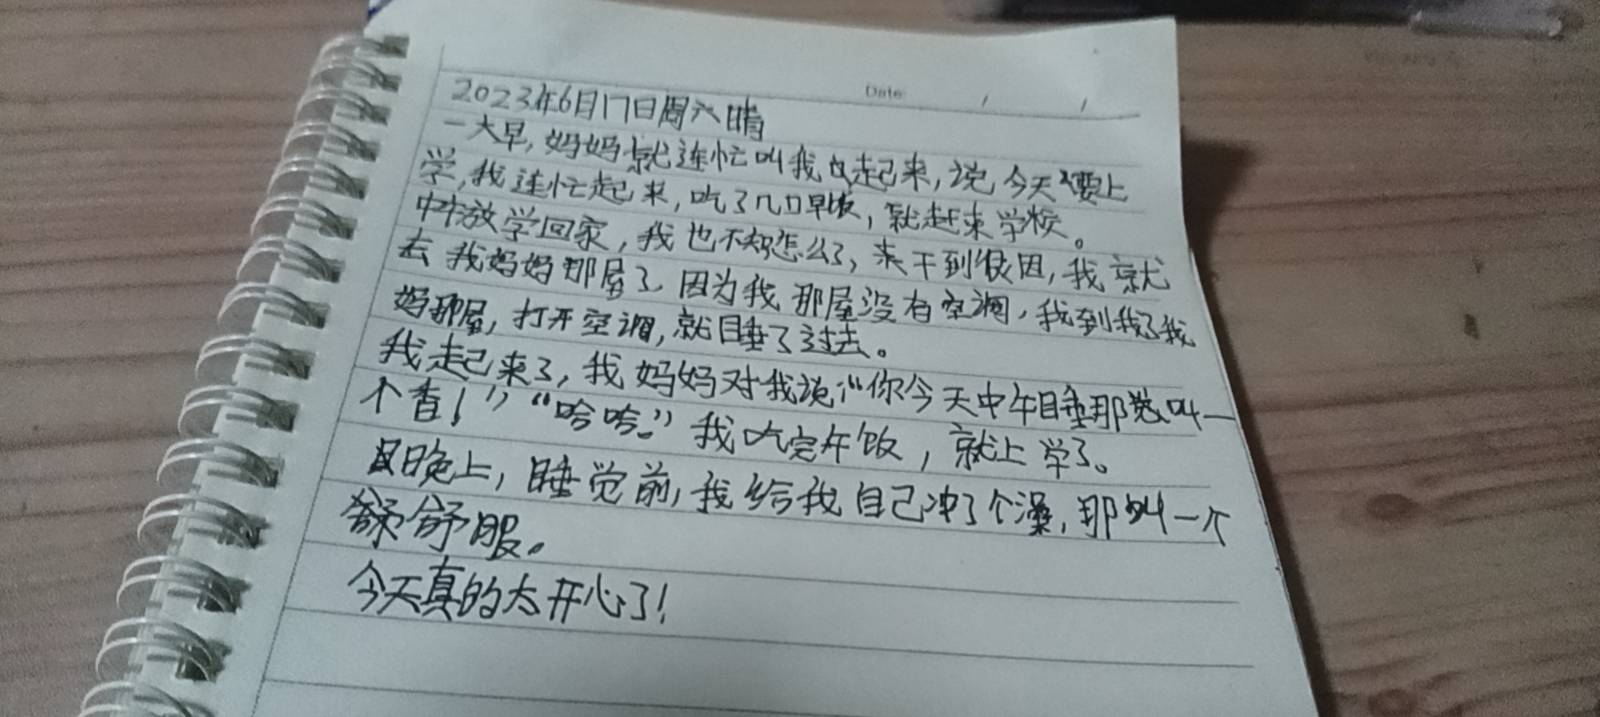 Date: / /
2023年6月17日周六晴
一大早,妈妈就连忙叫我起来,说今天要上
学,我连忙起来,吃了几口早饭,就赶来学校。
中午放学回家,我也不知怎么了,来干到很困,我就
去我妈妈那屋了,因为我那屋没有空调,我到我了我
妈那屋,打开空调,就睡了过去。
我起来了,我妈妈对我说:“你今天中午睡那觉叫一
个香!”,“哈哈。”我吃完午饭,就上学了。
晚上,睡觉前,我给我自己冲了个澡,那叫一个
舒舒服。
今天真的太开心了!